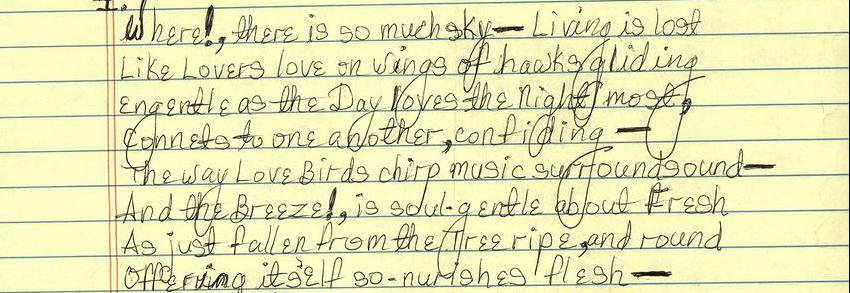 I.
Where!, there is so much sky— Living is lost
Like Lovers love on wings of hawks gliding
engentle as the Day loves the Night most,
Connets to one another, confiding —
The way Love Birds chirp music surroundsound—
And the Breeze!, is soul-gentle about Fresh
As just fallen from the Tree ripe, and round
Offerring itself so-nurishes flesh —